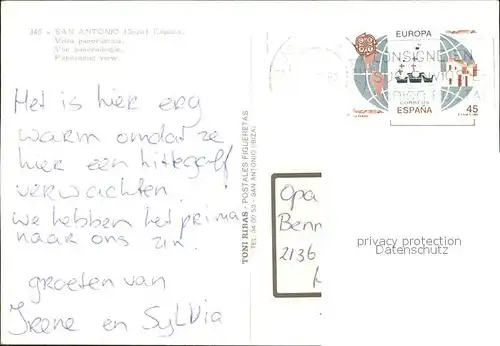 340 - SAN ANTONIO (Ibiza) España.
Vista panorámica.
Vue panoramique.
Panoramic view.
Het is hier erg
warm omdat ze
hier een hittegolf
verwachten.
we hebben het prima
naar ons zin.
groeten van
Irene en Sylvia
TONI RIBAS - POSTALES FIGUERETAS
TEL. 34 00 53 - SAN ANTONIO (IBIZA)
EUROPA
CONSIGNE
CORREOS
ESPAÑA 45
Opa
Benn
2136
privacy protection
Datenschutz